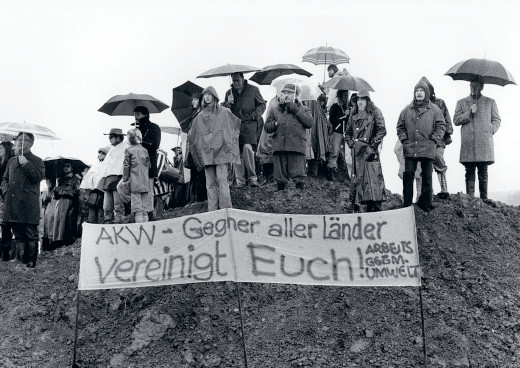 AKW - Gegner aller Länder
vereinigt Euch!
ARBEITS
GEEM.
UMWELT